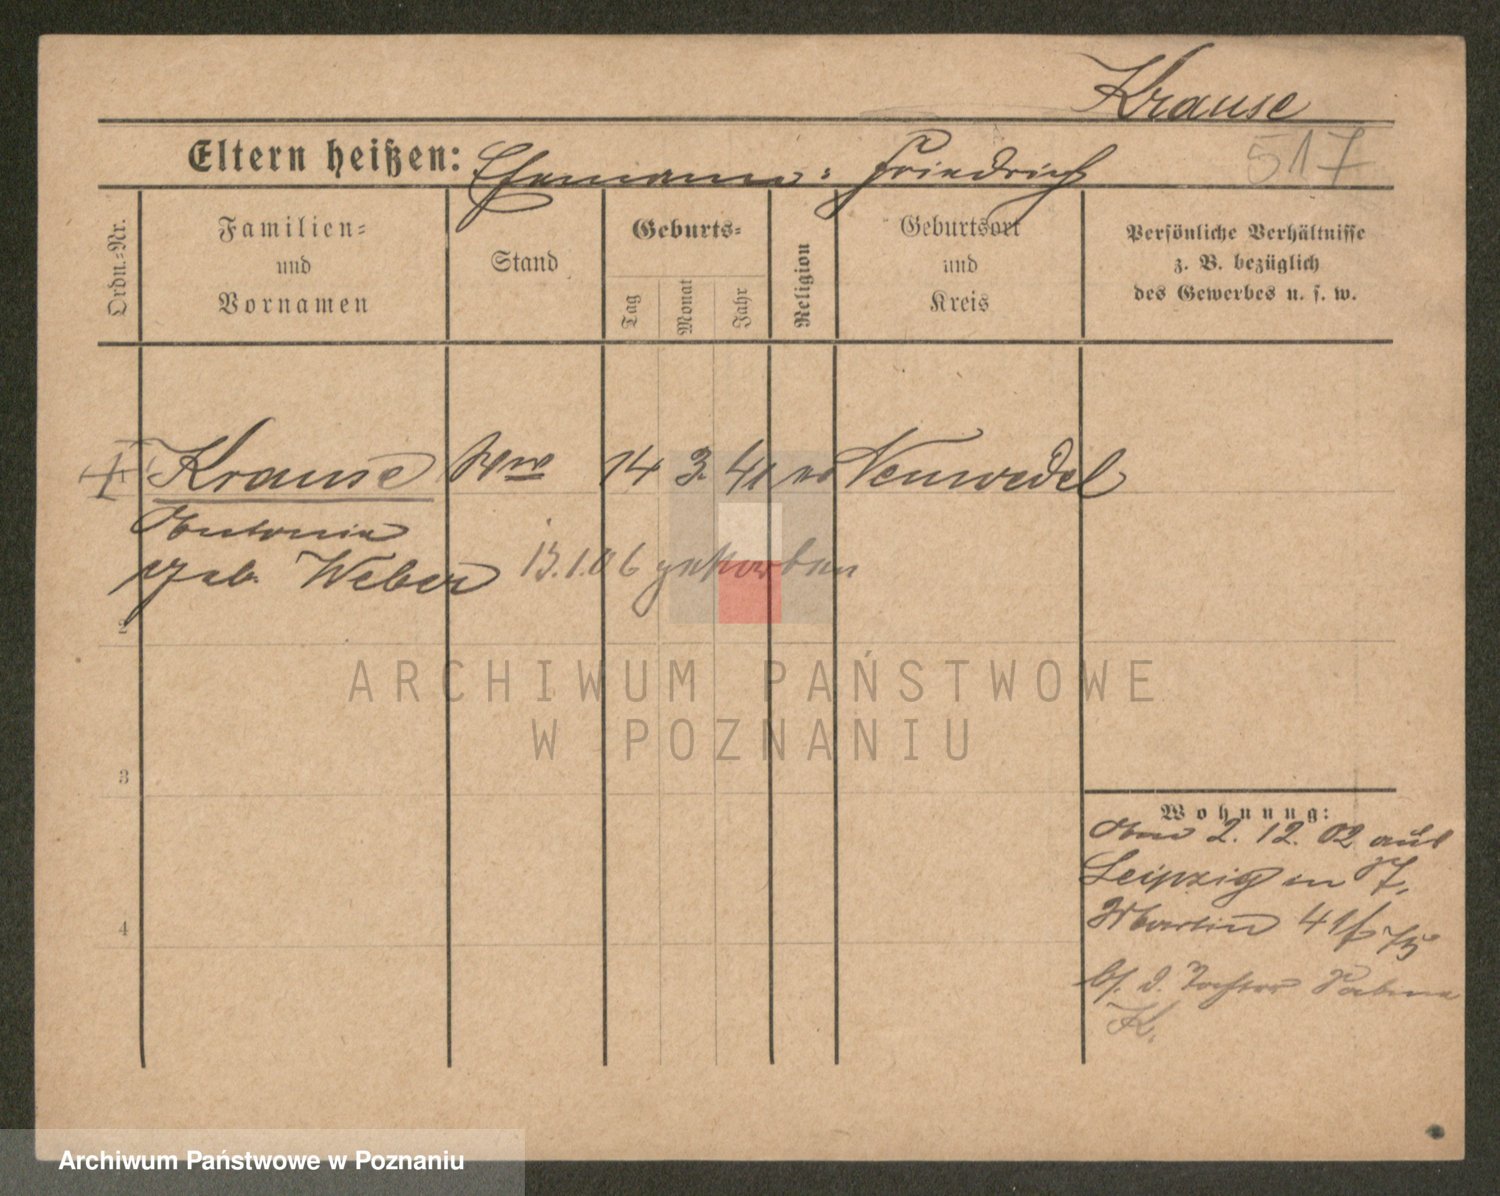 Krause
517
Eltern heißen: Ehemann: Friedrich
Ordn.-Nr.
Familien-
und
Vornamen
Stand
Geburts-
Tag
Monat
Jahr
Religion
Geburtsort
und
Kreis
Persönliche Verhältnisse
z. B. bezüglich
des Gewerbes u. s. w.
Krause Ww 14 3. 41 ev Neuwedel
Antonie
geb. Weber 13.1.06 gestorben
2
3
4
Wohnung:
2. 12. 02 aus
Leipzig in J.
Martin 41
b. d. Tochter
K.
ARCHIWUM PAŃSTWOWE
W POZNANIU
Archiwum Państwowe w Poznaniu